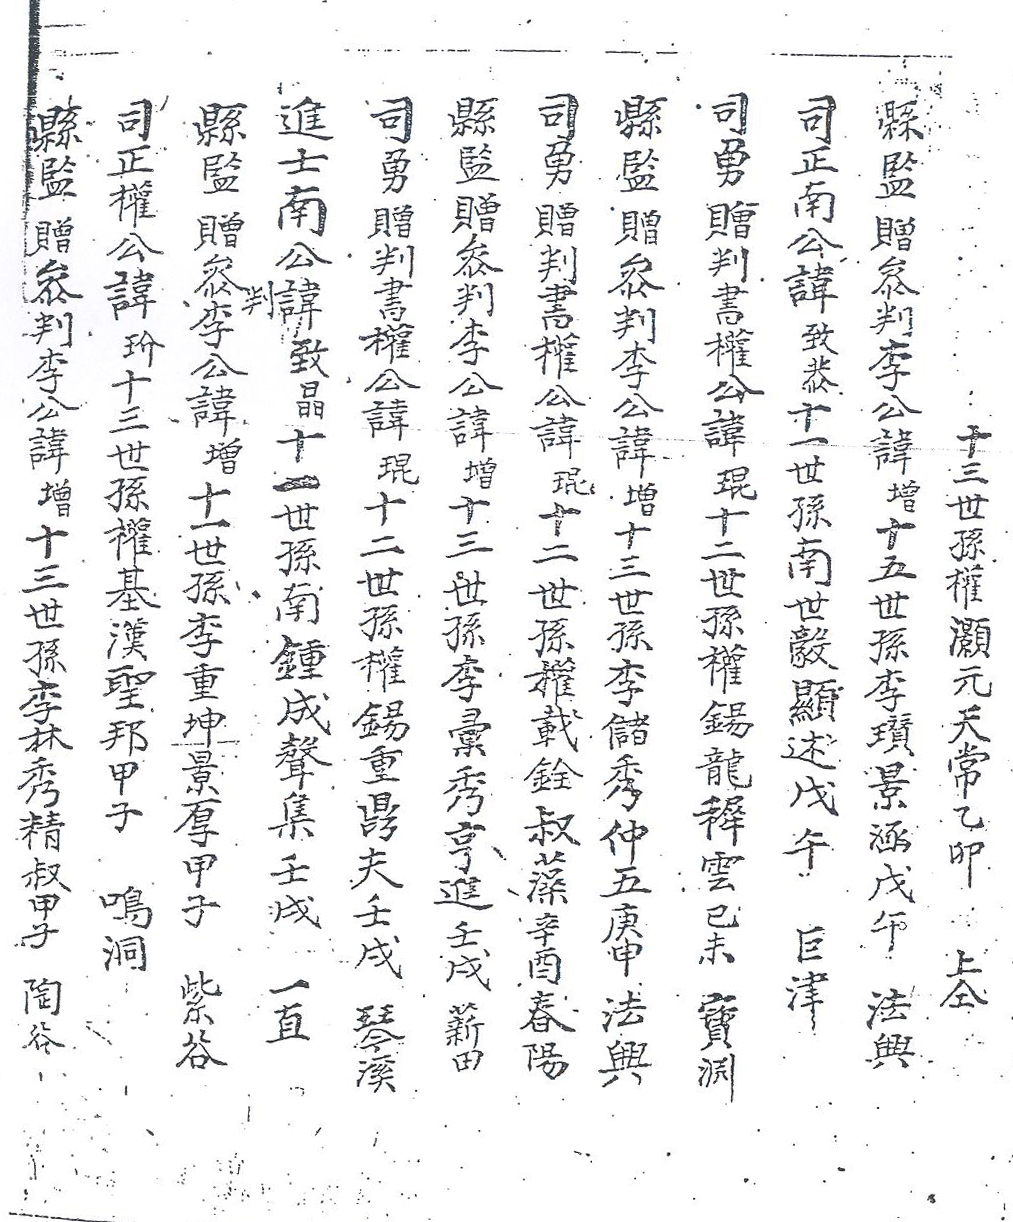 十三世孫權灝元天常乙卯 上仝
縣監贈參判李公諱增十五世孫李瓚景涵戊午 法興
司正南公諱致恭十一世孫南世毅顯述戊午 巨津
司勇贈判書權公諱琨十二世孫權錫龍穉雲己未 寶洲
縣監贈參判李公諱增十三世孫李儲秀仲五庚申 法興
司勇贈判書權公諱琨十二世孫權載銓叔藻辛酉 春陽
縣監贈參判李公諱增十三世孫李彙秀亨進壬戌 薪田
司勇贈判書權公諱琨十二世孫權錫重鼎夫壬戌 琴溪
進士南公諱致晶十一世孫南鍾成聲集壬戌 一直
縣監贈參判李公諱增十一世孫李重坤景厚甲子 紫谷
司正權公諱玠十三世孫權基漢聖邦甲子 鳴洞
縣監贈參判李公諱增十三世孫李林秀精叔甲子 陶谷